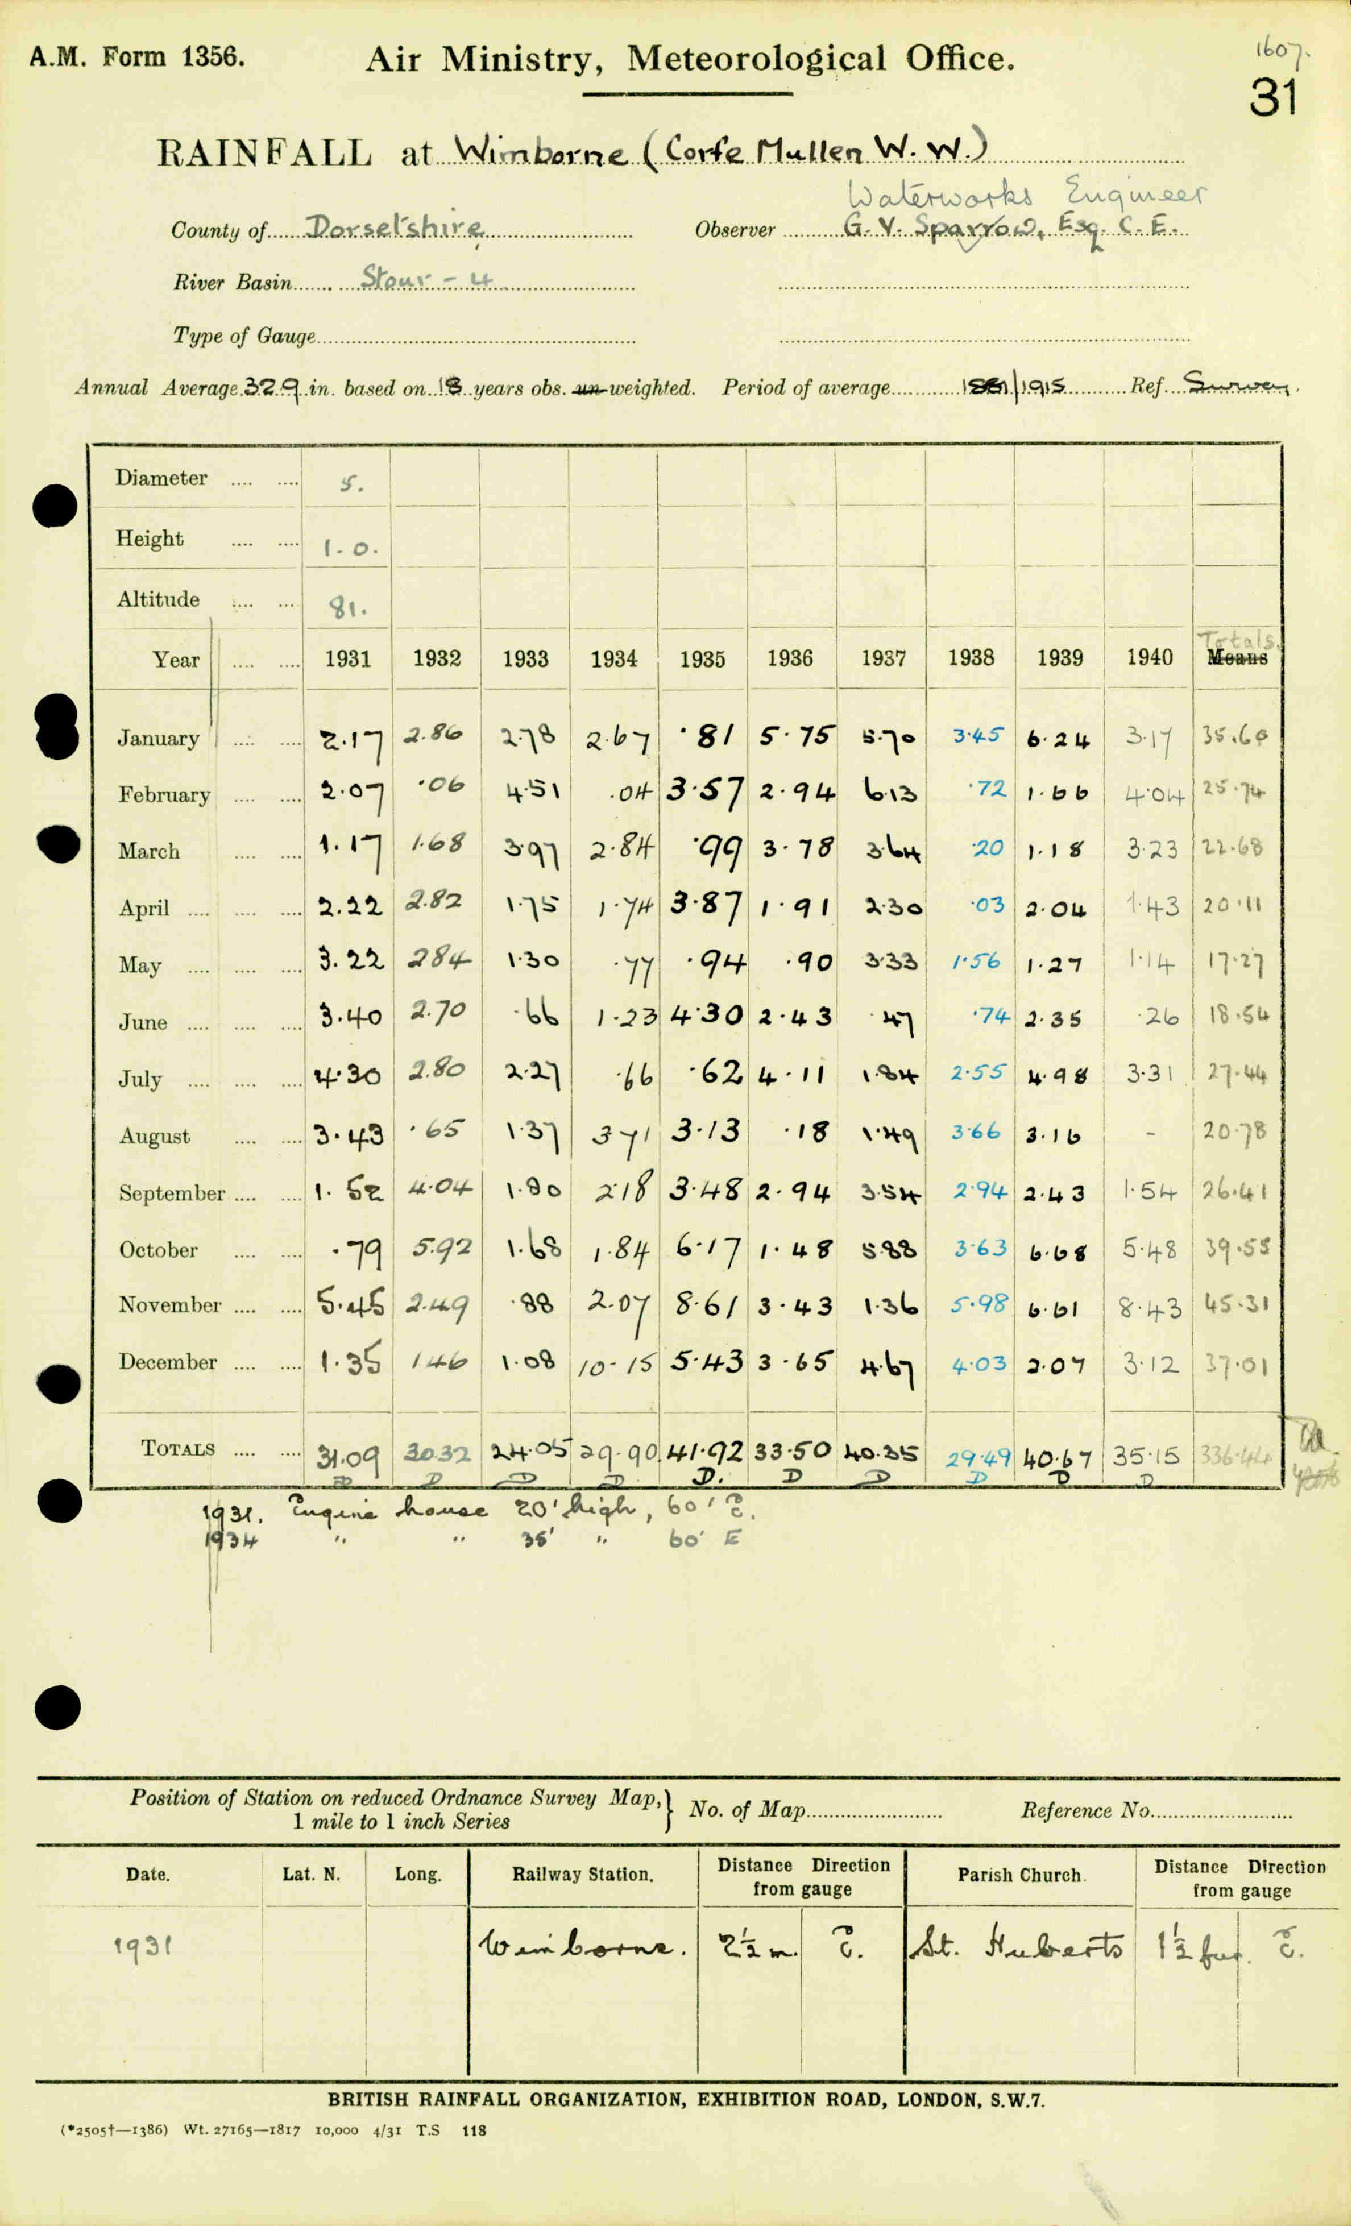 1607.
A.M. Form 1356. Air Ministry, Meteorological Office.
31
RAINFALL at Wimborne (Corfe Mullen W. W.)
Waterworks Engineer
County of Dorsetshire Observer G. V. Sparrow, Esq. C. E.
River Basin Stour - 4
Type of Gauge
Annual Average 32.9 in. based on 18 years obs. un-weighted. Period of average 1881/1915 Ref. Survey.
Diameter 5.
Height 1 - 0.
Altitude 81.
Totals.
Year 1931 1932 1933 1934 1935 1936 1937 1938 1939 1940 Means
January 2.17 2.86 2.78 2.67 .81 5.75 5.70 3.45 6.24 3.17 35.60
February 2.07 .06 4.51 .04 3.57 2.94 6.13 .72 1.66 4.04 25.74
March 1.17 1.68 3.97 2.84 .99 3.78 3.64 .20 1.18 3.23 22.68
April 2.22 2.82 1.75 1.74 3.87 1.91 2.30 .03 2.04 1.43 20.11
May 3.22 2.84 1.30 .77 .94 .90 3.33 1.56 1.27 1.14 17.27
June 3.40 2.70 .66 1.23 4.30 2.43 .47 .74 2.35 .26 18.54
July 4.30 2.80 2.27 .66 .62 4.11 1.84 2.55 4.98 3.31 27.44
August 3.43 .65 1.37 3.71 3.13 .18 1.49 3.66 3.16 - 20.78
September 1.52 4.04 1.80 2.18 3.48 2.94 3.54 2.94 2.43 1.54 26.41
October .79 5.92 1.68 1.84 6.17 1.48 5.88 3.63 6.68 5.48 39.55
November 5.45 2.49 .88 2.07 8.61 3.43 1.36 5.98 6.61 8.43 45.31
December 1.35 1.46 1.08 10.15 5.43 3.65 4.67 4.03 2.07 3.12 37.01
TOTALS 31.09 30.32 24.05 29.90 41.92 33.50 40.35 29.49 40.67 35.15 336.44
D D D D D. D D D D D
1931. Engine house 20' high, 60' E.
1934 " " 35' " 60' E
Position of Station on reduced Ordnance Survey Map,} No. of Map Reference No.
1 mile to 1 inch Series
Date. Lat. N. Long. Railway Station. Distance Direction from gauge Parish Church. Distance Direction from gauge
1931 Wimborne. 2½ m. E. St. Huberts 1½ fur. E.
BRITISH RAINFALL ORGANIZATION, EXHIBITION ROAD, LONDON, S.W.7.
(*2505†—1386) Wt. 27165—1817 10,000 4/31 T.S 118